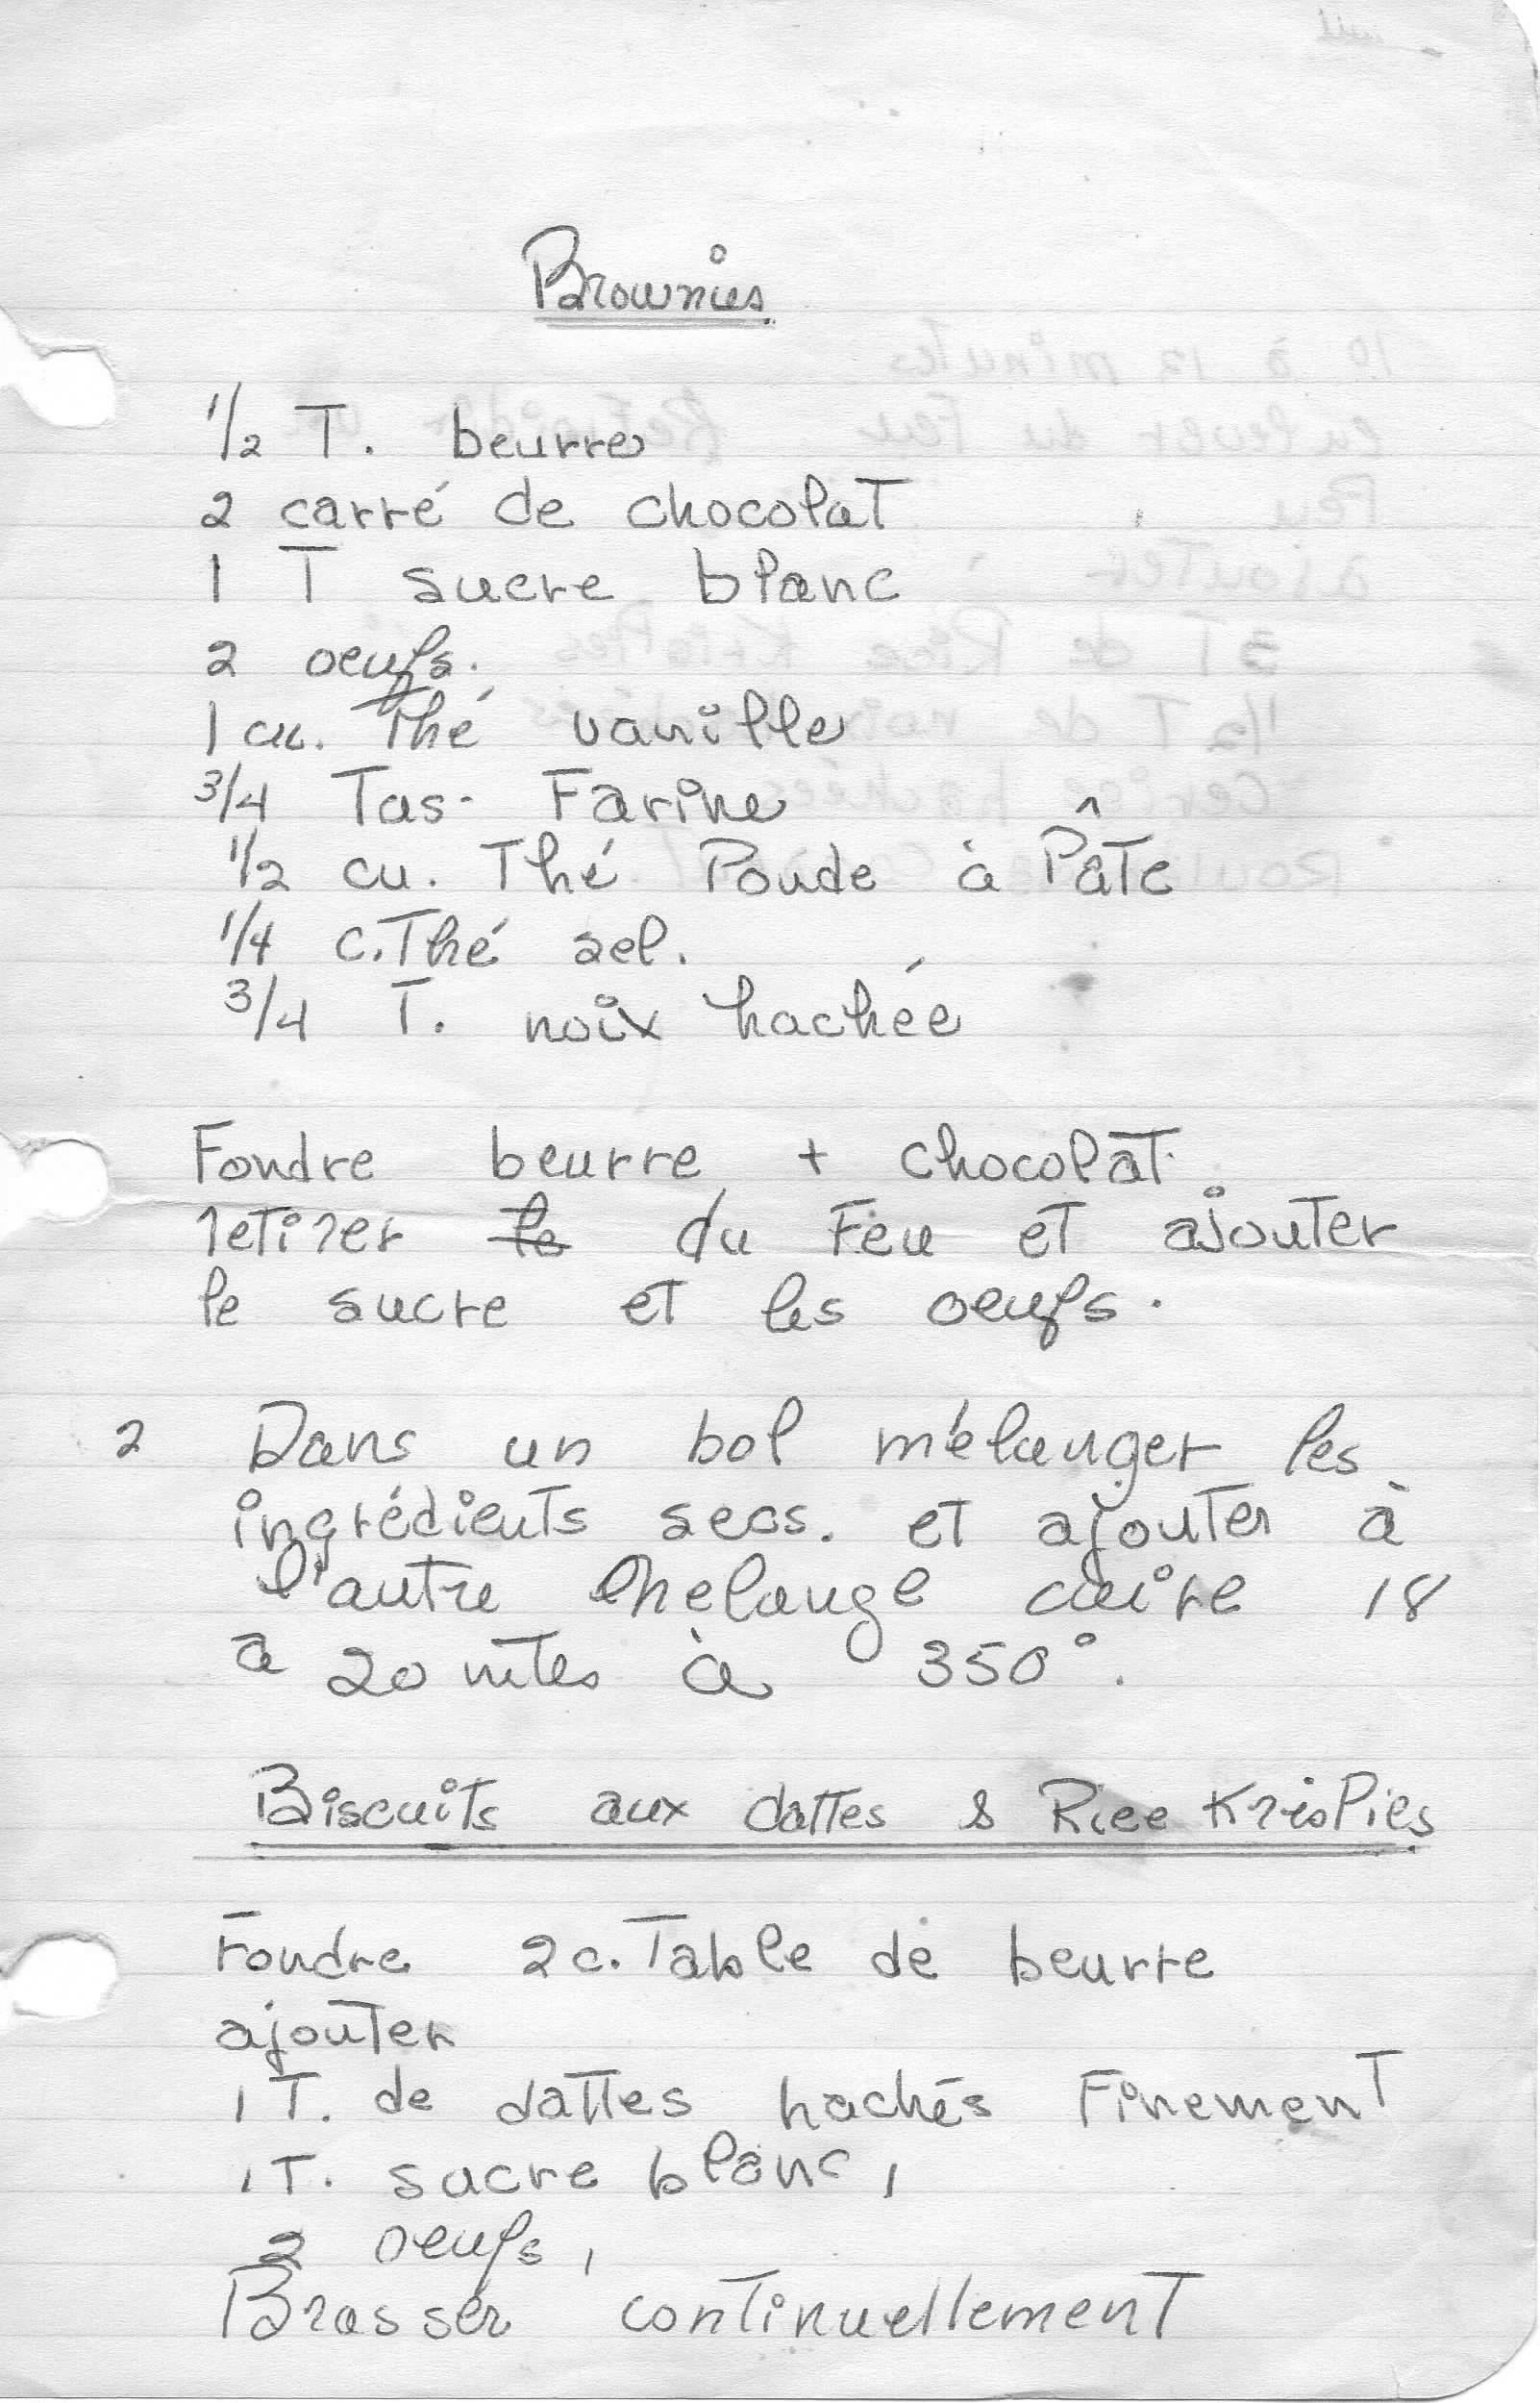 Brownies
1/2 T. beurre
2 carré de chocolaT
1 T sucre blanc
2 oeufs.
1 cu. Thé vanille
3/4 Tas. Farine
1/2 cu. Thé Poude à PâTe
1/4 c. Thé sel.
3/4 T. noix hachée
Fondre beurre + chocolaT.
retirer le du Feu eT ajouTer
le sucre eT les oeufs.
2 Dans un bol mélanger les
ingrédienTs secs. eT ajouTer à
l'auTre melange cuire 18
a 20 mTes à 350°.
BiscuiTs aux daTTes & Rice KrisPies
Fondre 2 c. Table de beurre
ajouTer
1 T. de daTTes hachés FinemenT
1 T. sucre blanc,
2 oeufs,
Brasser conTinuellemenT